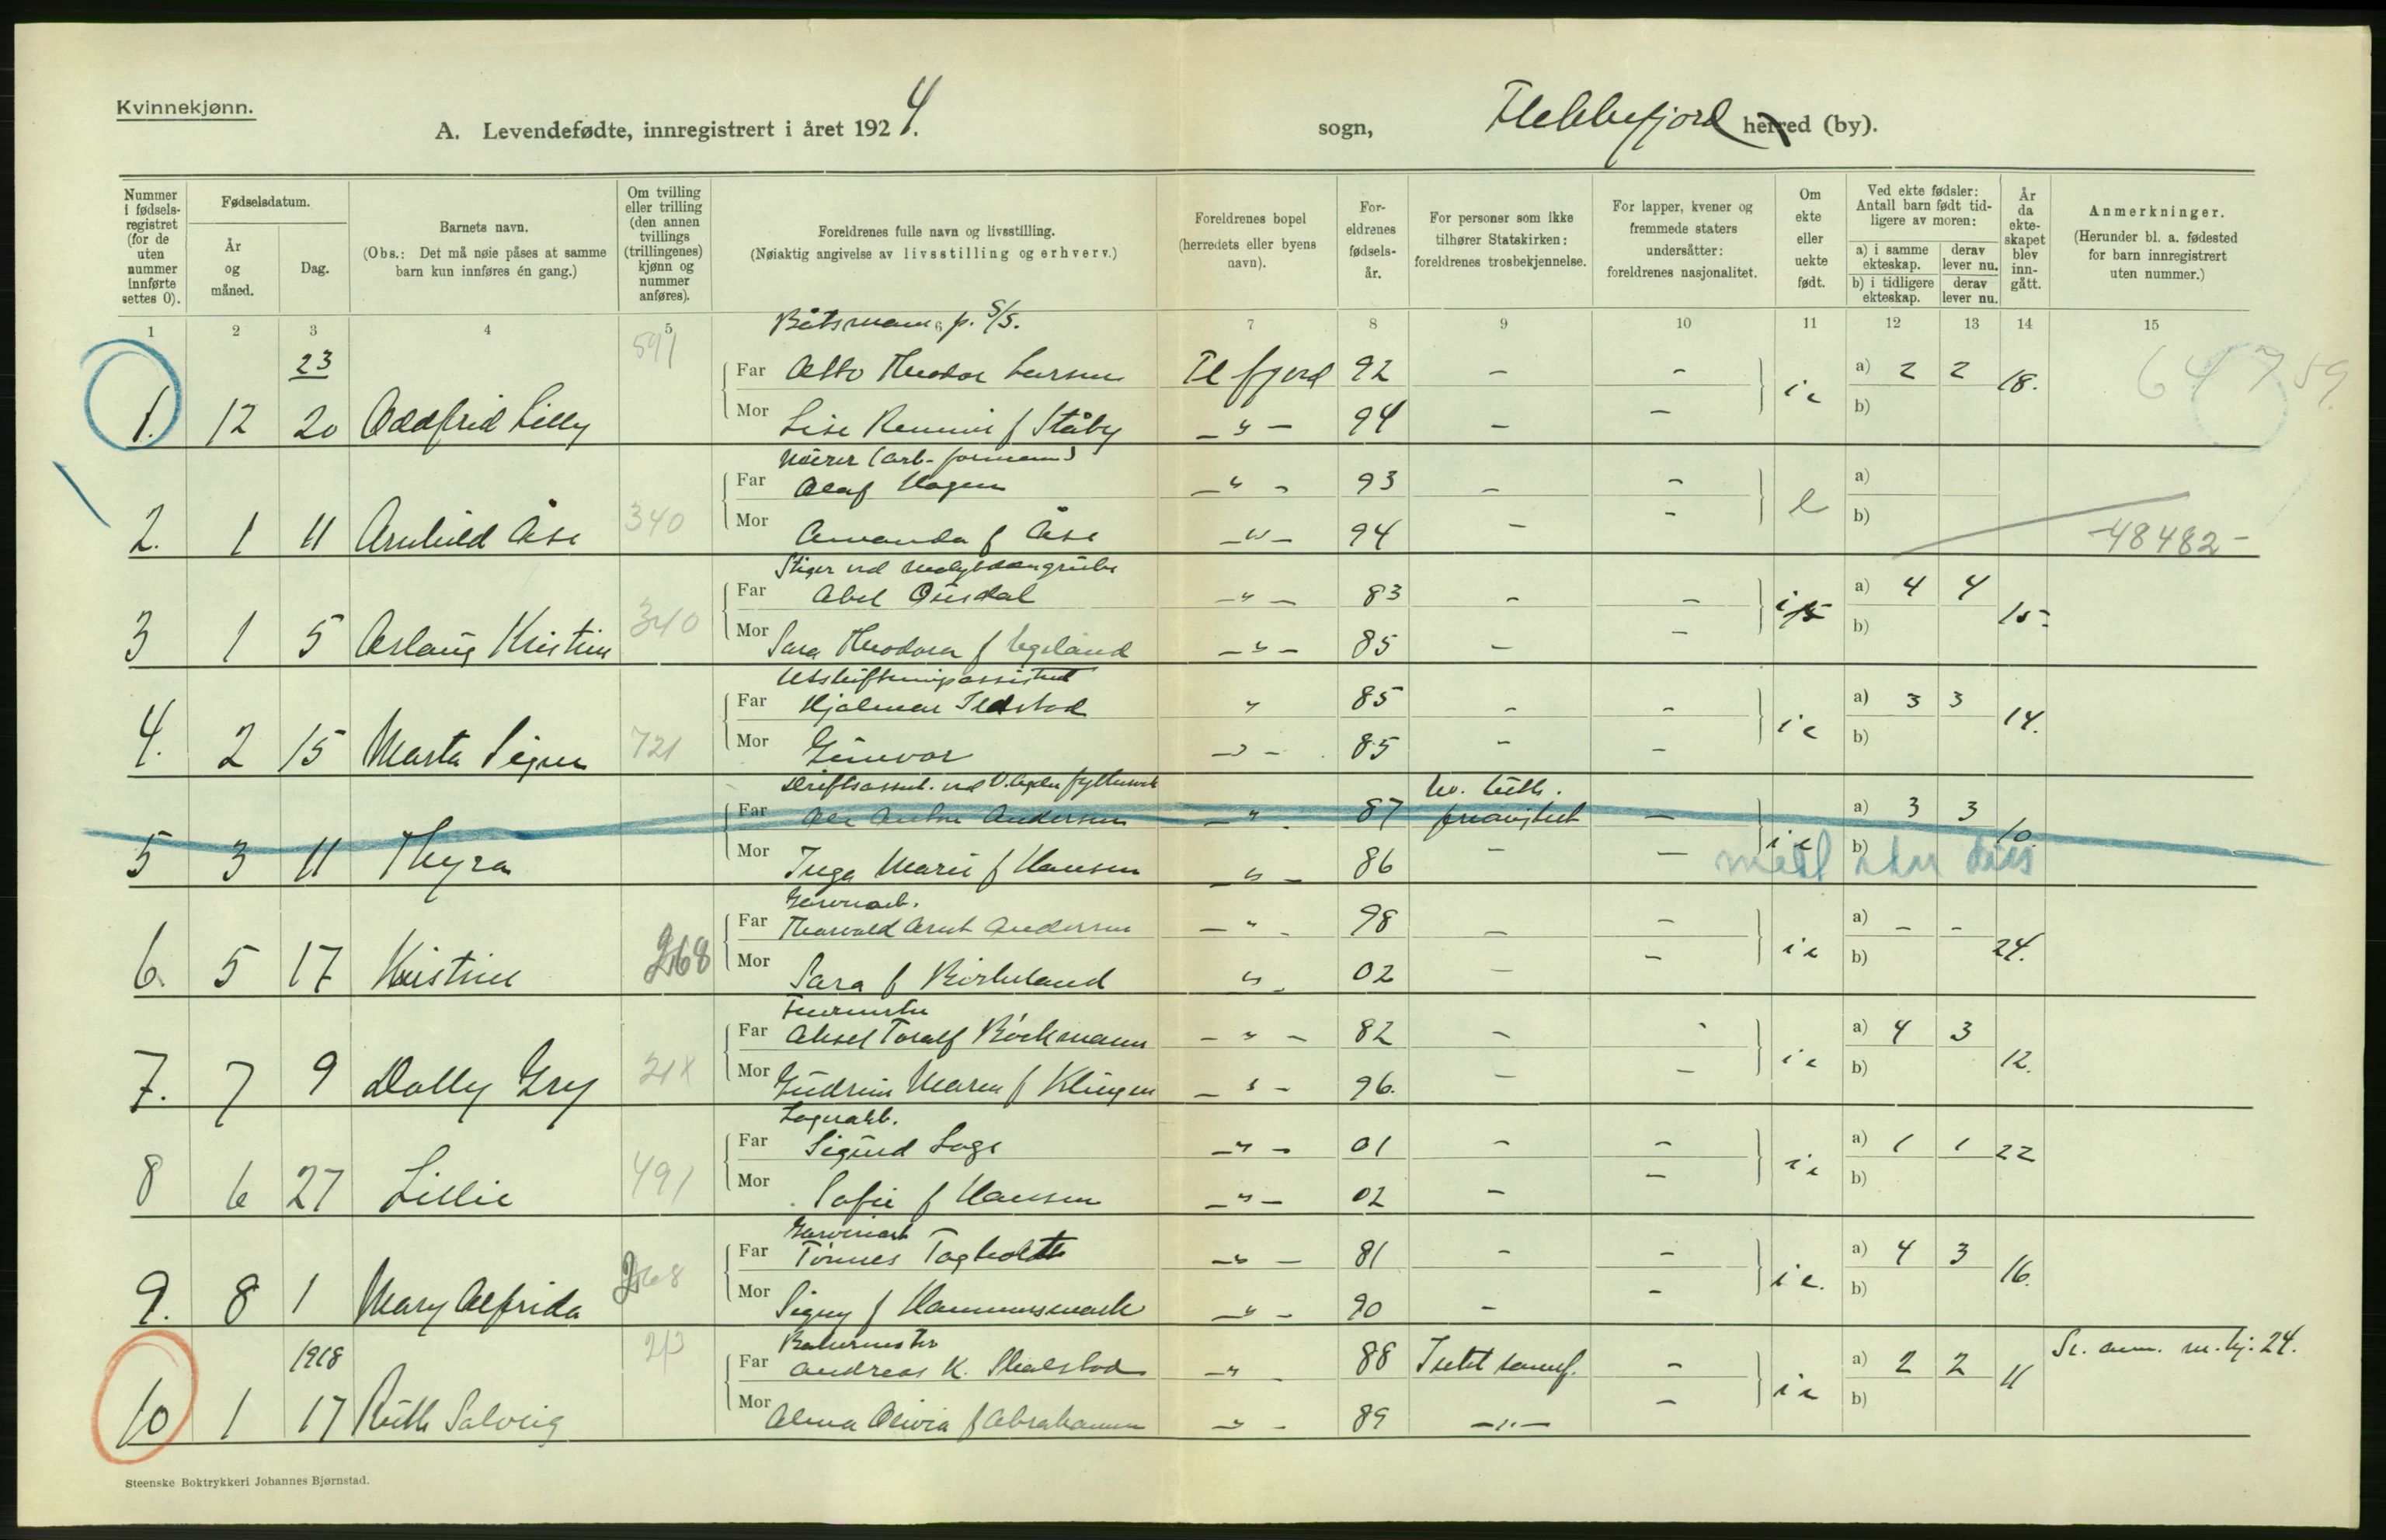 Kvinnekjønn.
A. Levendefødte, innregistrert i året 1924. sogn, Flekkefjord herred (by).
Nummer i fødsels-registret (for de uten nummer innførte settes 0).
Fødselsdatum.
År og måned.
Dag.
Barnets navn.
(Obs.: Det må nøie påses at samme barn kun innføres én gang.)
Om tvilling eller trilling (den annen tvillings (trillingenes) kjønn og nummer anføres).
Foreldrenes fulle navn og livsstilling.
(Nøiaktig angivelse av livsstilling og erhverv.)
Foreldrenes bopel (herredets eller byens navn).
For-eldrenes fødsels-år.
For personer som ikke tilhører Statskirken: foreldrenes trosbekjennelse.
For lapper, kvener og fremmede staters undersåtter: foreldrenes nasjonalitet.
Om ekte eller uekte født.
Ved ekte fødsler: Antall barn født tid-ligere av moren:
a) i samme ekteskap. derav lever nu.
b) i tidligere ekteskap. derav lever nu.
År da ekte-skapet blev inn-gått.
Anmerkninger.
(Herunder bl. a. fødested for barn innregistrert uten nummer.)
1 2 3 4 5 6 7 8 9 10 11 12 13 14 15
Båtsmann p. S/S.
23 591
Far Otto Theodor Larsen Fl fjord 92 – – a) 2 2 18.
1. 12 20 Oddfrid Lilly Mor Lise f Ståby – " – 94 – – b)
Far Olaf Hagen – " – 93 – – a)
2. 1 11 Arnhild Åse 340 Mor Amanda f Åse – " – 94 – – b) -48482-
Stiger ved molybdængrube
Far Abel Ousdal – " – 83 – – a) 4 4 15
3 1 5 Aslaug Kristine 340 Mor Sara Theodora f Egeland – " – 85 – – b)
Utskiftningsassistent
Far Hjalmar " 85 – – a) 3 3 14.
4. 2 15 Marta Signe 721 Mor Gunvor – " – 85 – – b)
Far Ole Anton Andersen – " – 87 – a) 3 3 10.
5 3 11 Thyra Mor Inga Marie f Hansen – " – 86 – – b)
Garveriarb.
Far Thorvald Arnt Andersen – " – 98 – – a) – – 24.
6. 5 17 Kristine 268 Mor Sara f Birkeland " – 02 – – b)
Far Aksel Toralf Böckmann – " – 82 – a) 4 3 12.
7. 7 9 Dolly Gry Mor Gudrun Maren f Klungen – " – 96. – – b)
Lagerarb.
Far Sigurd Loge – " – 01 – – a) 1 1 22
8 6 27 Lillie 491 Mor Sofie f Hansen – " – 02 – – b)
Garveriarb
Far Tönnes Tagholdt – " – 81 – – a) 4 3 16.
9. 8 1 Mary Alfrida 268 Mor Signy f Hammersmark – " – 90 – – b)
Bakermester
1918 213
Far Andreas K. Skalstad – " – 88 Intet samf. – a) 2 2 11 Se anm. m.kj. 24.
10 1 17 Ruth Solveig Mor Alma Olivia f Abrahamsen – " – 89 – " – – b)
Steenske Boktrykkeri Johannes Bjørnstad.